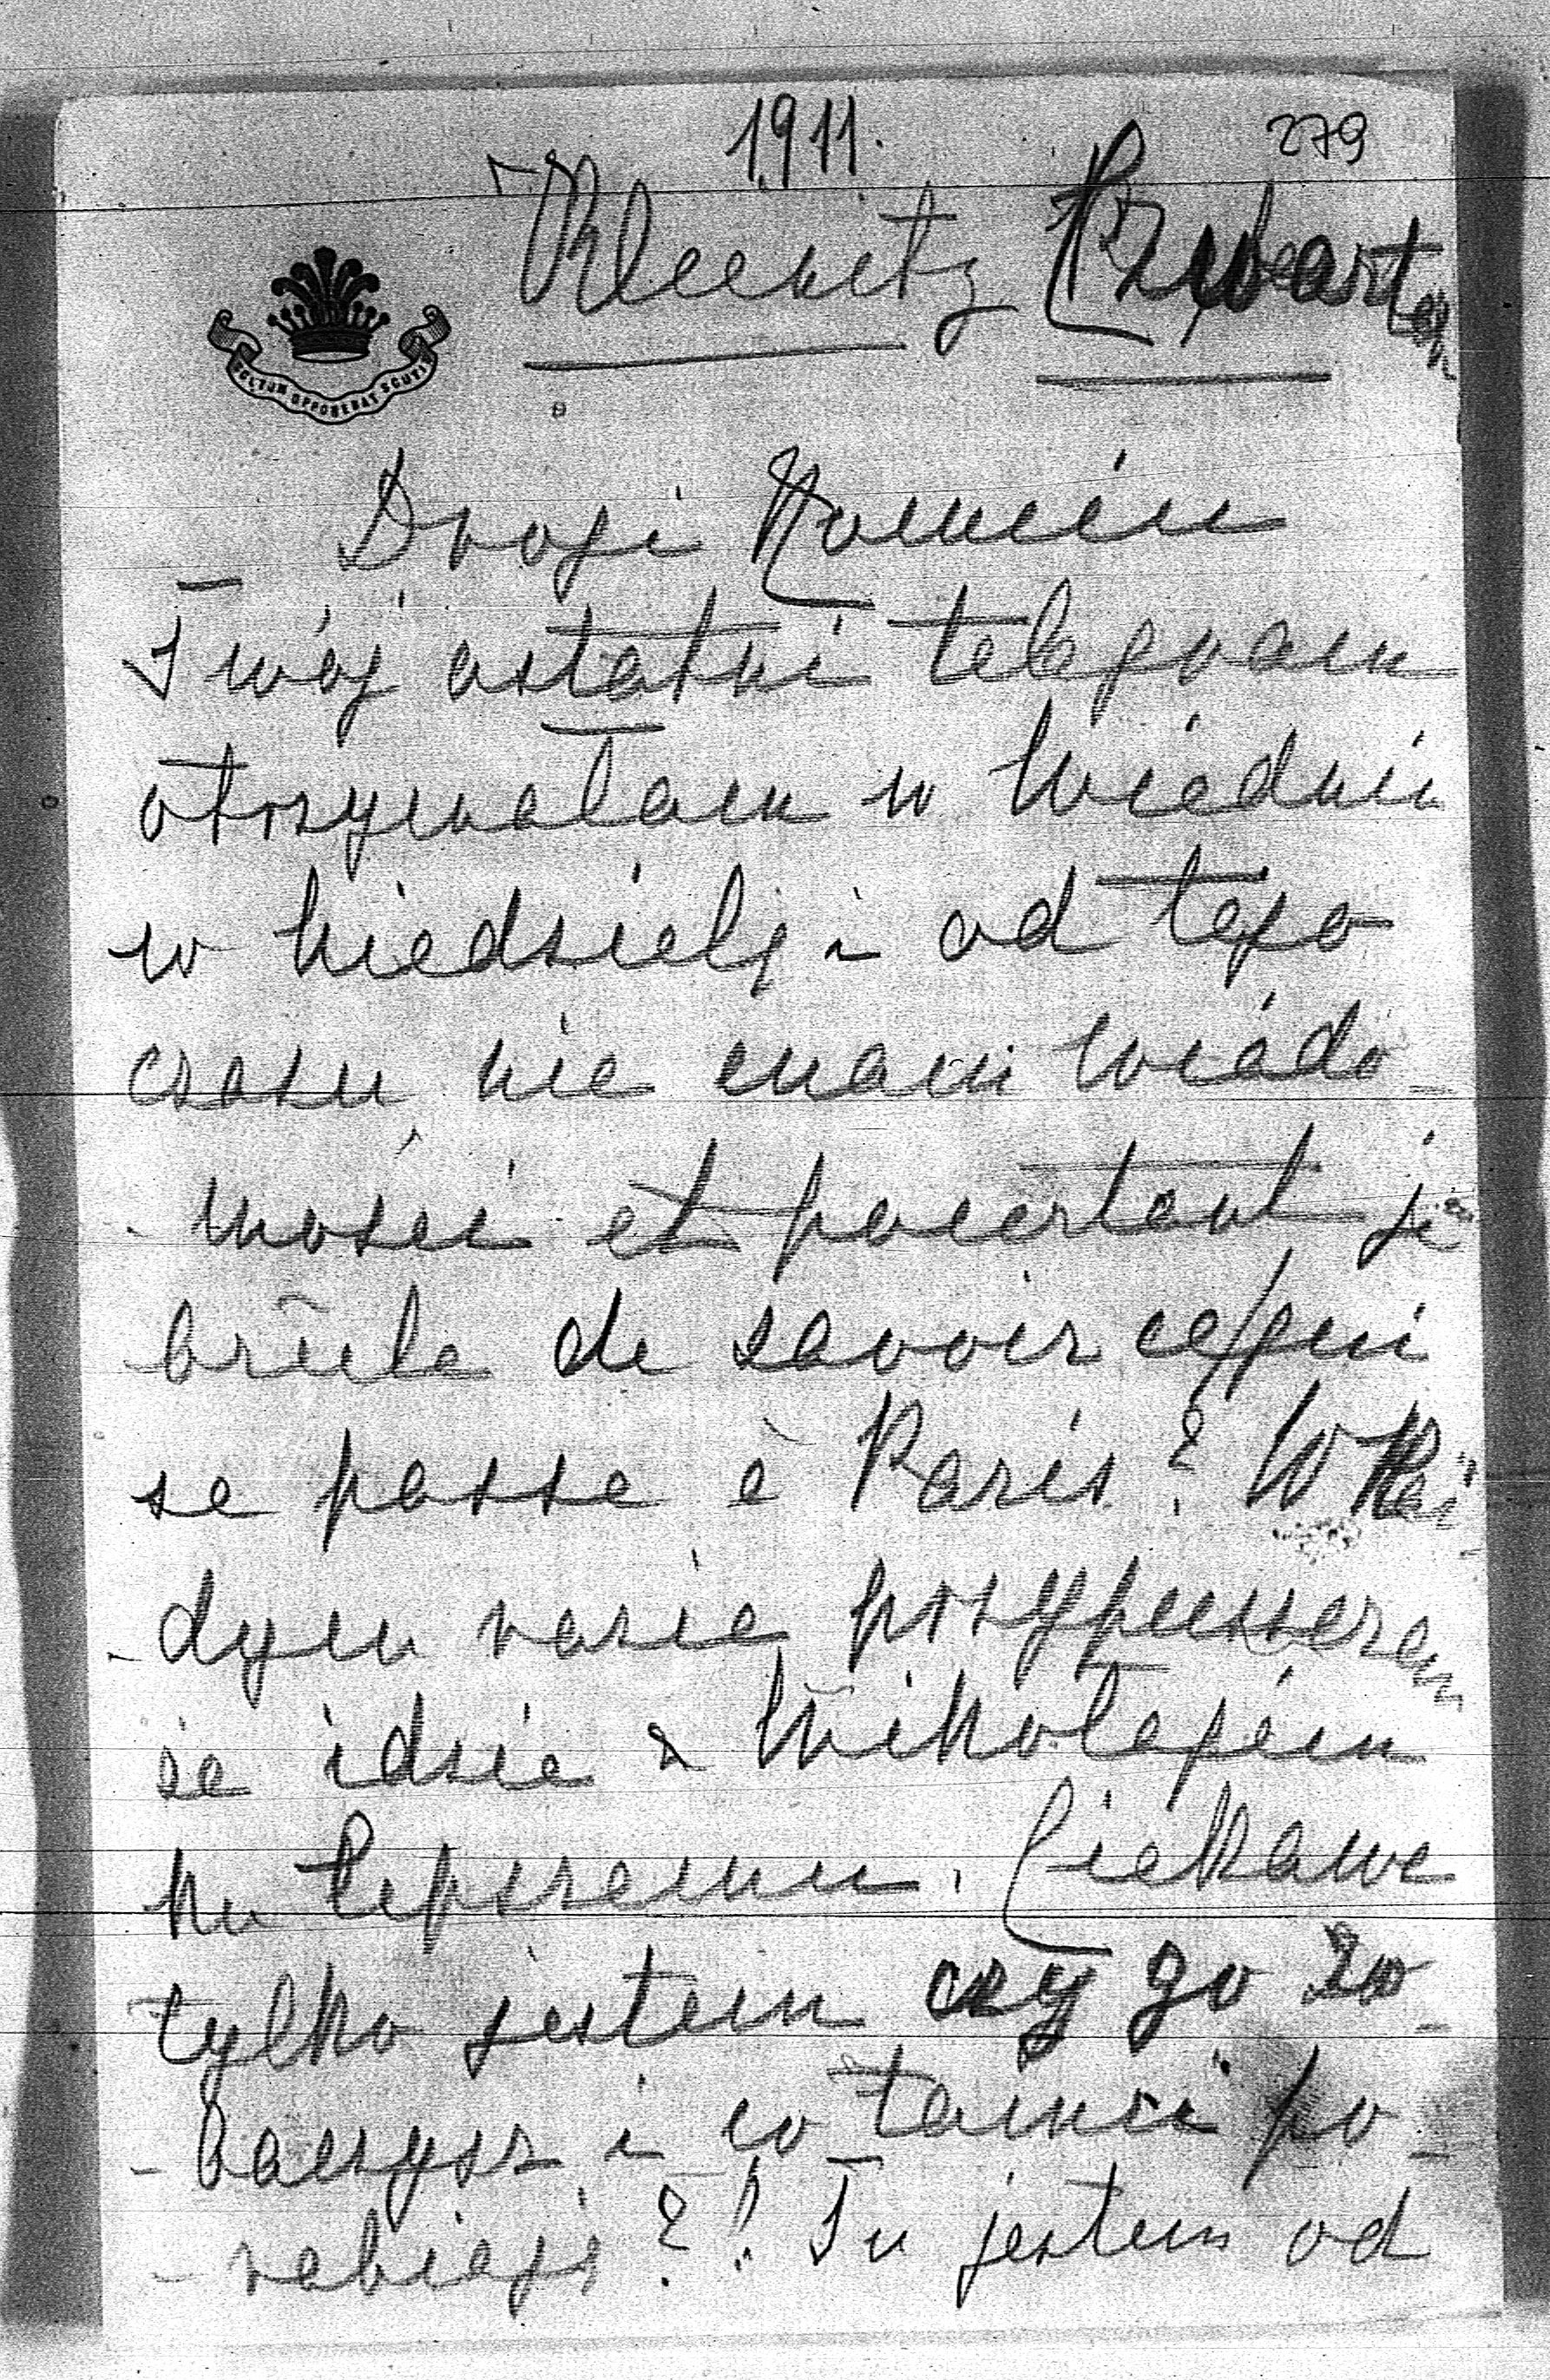 1911.
279
Kleenitz
SOLTUM OPPONEBAT SCUTI
Drogi
Twój ostatni telegram
otrzymałam w Wiedniu
w niedzielę i od tego
czasu nie mam wiado-
mości et pourtant je
brûle de savoir ce qui
se passe à Paris? W Każ-
dym razie przypuszczam
że idzie z Mikołajem
ku lepszemu. Ciekawe
tylko jestem czy go zo-
baczysz i co tamci po-
rabiają?! Tu jestem od